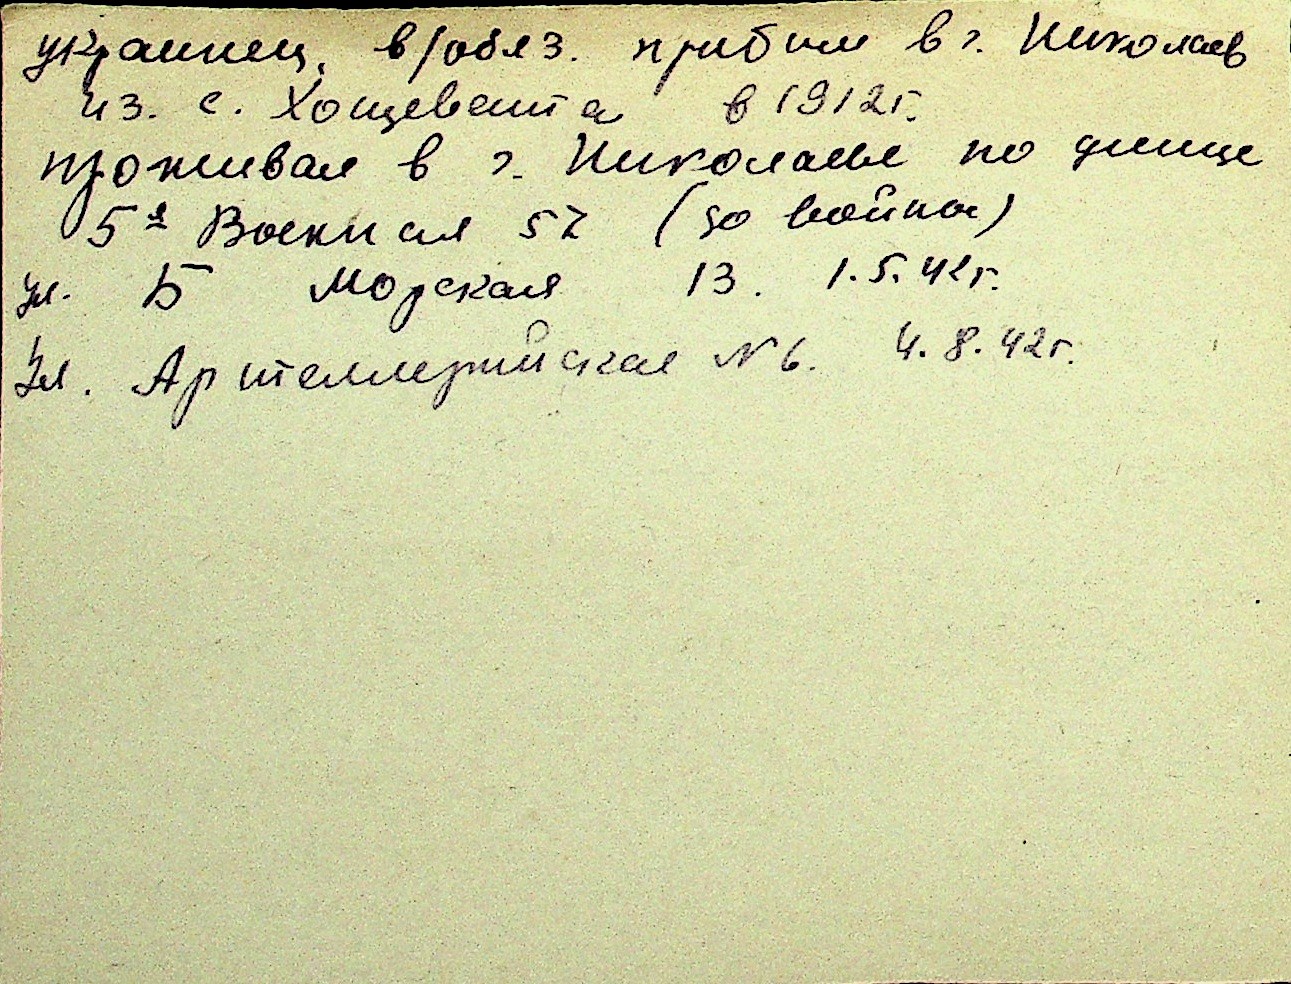 украинец, в/обяз. прибыл в г. Николаев
из. с. Хощевата в 1912 г.
проживал в г. Николаеве по улице
5я Военная 57 (до войны)
ул. Б Морская 13. 1.5.42г.
Ул. Артиллерийская № 6. 4.8.42г.